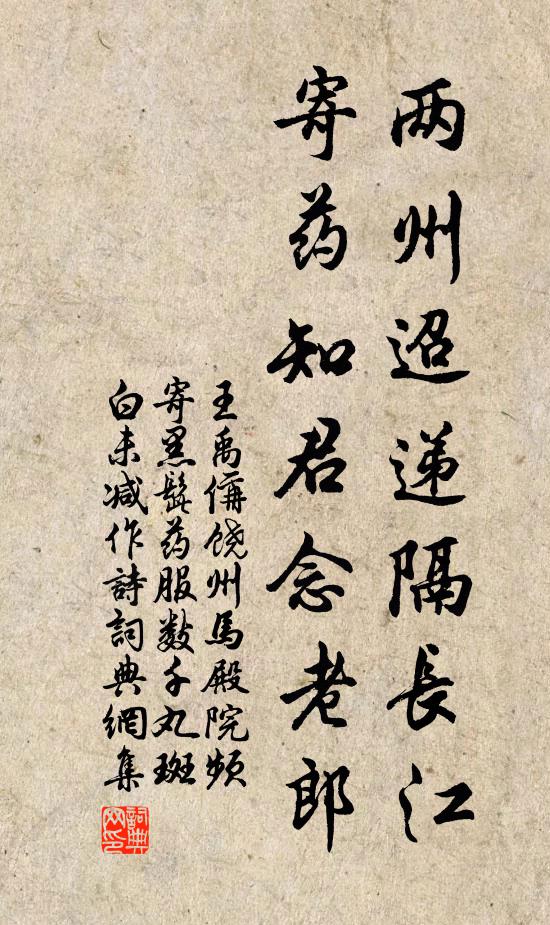 两州迢递隔長江
寄药知君念老郎
王禹偁饶州馬殿院频
寄黑髭药服数千丸斑
白未减作詩詞典網集
詞典
网印